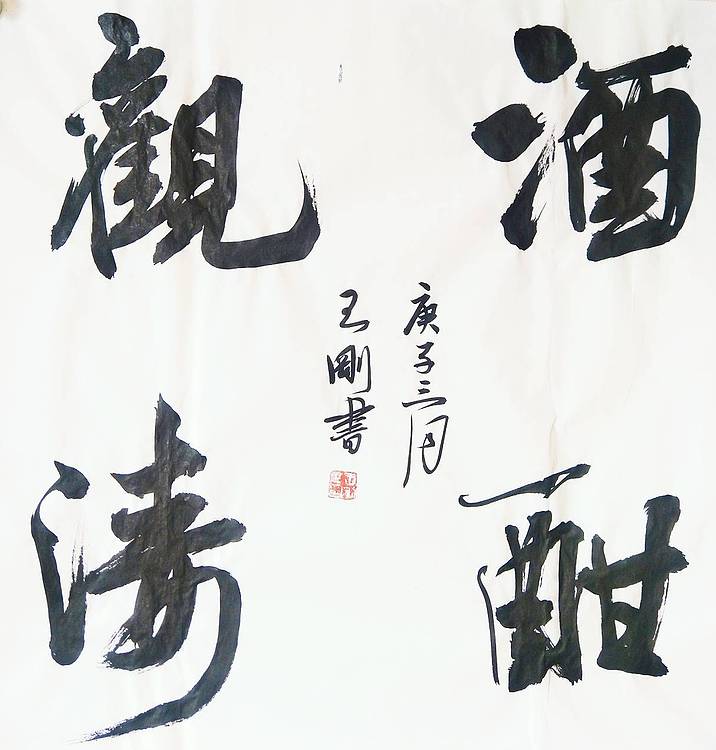 酒酣
觀濤
庚子三月
王剛書